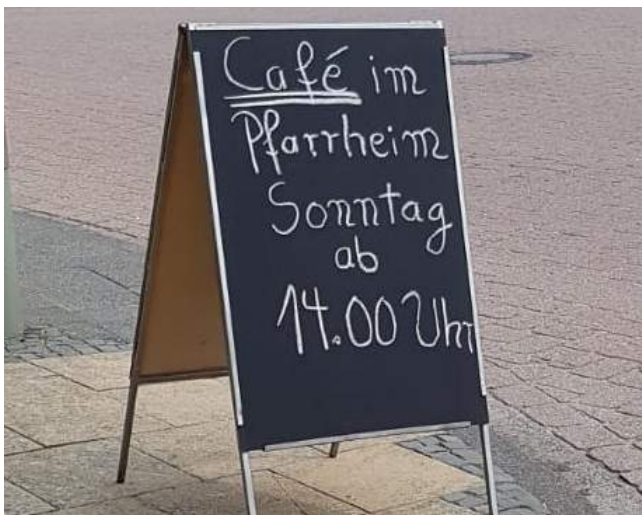 Café im
Pfarrheim
Sonntag
ab
14.00 Uhr